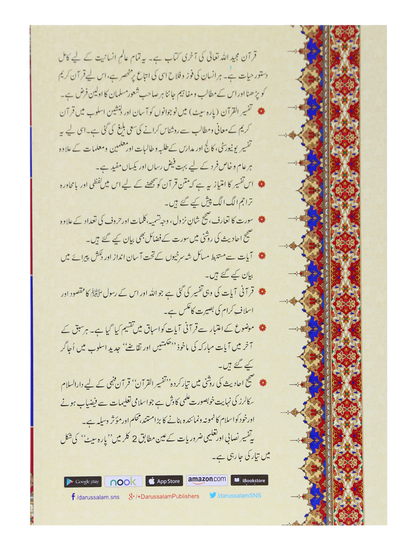 قرآن مجید اللہ تعالیٰ کی آخری کتاب ہے۔ یہ تمام عالمِ انسانیت کے لیے کامل
دستورِ حیات ہے۔ ہر انسان کی فوز و فلاح اسی کی اتباع پر منحصر ہے، اس لیے قرآن کریم
کو پڑھنا اور اس کے مطالب و مفاہیم جاننا ہر صاحبِ شعور مسلمان کا اولین فرض ہے۔
تفسیر القرآن (پارہ سیٹ) میں نوجوانوں کو آسان اور دلنشین اسلوب میں قرآن
کریم کے معانی و مطالب سے روشناس کرانے کی سعی بلیغ کی گئی ہے۔ اسی لیے یہ
تفسیر یونیورسٹی، کالج اور مدارس کے طلبہ و طالبات اور معلمین و معلمات کے علاوہ
ہر عام و خاص فرد کے لیے بہت فیض رساں اور یکساں مفید ہے۔
اس تفسیر کا امتیاز یہ ہے کہ متنِ قرآن کو سمجھنے کے لیے اس میں لفظی اور بامحاورہ
تراجم الگ الگ پیش کیے گئے ہیں۔
سورت کا تعارف، صحیح شانِ نزول، وجہ تسمیہ، کلمات اور حروف کی تعداد کے علاوہ
صحیح احادیث کی روشنی میں سورت کے فضائل بھی بیان کیے گئے ہیں۔
آیات سے مستنبط مسائل شہ سرخیوں کے تحت آسان انداز اور دلکش پیرائے میں
بیان کیے گئے ہیں۔
قرآنی آیات کی وہی تفسیر کی گئی ہے جو اللہ اور اس کے رسول ﷺ کا مقصود اور
اسلاف کرام کی بصیرت کا عکس ہے۔
موضوع کے اعتبار سے قرآنی آیات کو اسباق میں تقسیم کیا گیا ہے۔ ہر سبق کے
آخر میں آیات مبارکہ کی ماخوذ ”حکمتیں اور تقاضے“ جدید اسلوب میں اُجاگر
کیے گئے ہیں۔
صحیح احادیث کی روشنی میں تیار کردہ ”تفسیر القرآن“ قرآن فہمی کے لیے دارالسلام
سکالرز کی نہایت خوبصورت علمی کاوش ہے جو اسلامی تعلیمات سے فیضیاب ہونے
اور خود کو اسلام کا نمونہ و نمائندہ بنانے کا بڑا مستند، محکم اور مؤثر وسیلہ ہے۔
یہ تفسیر نصابی اور تعلیمی ضروریات کے عین مطابق 2 کلر میں ”پارہ سیٹ“ کی شکل
میں تیار کی جا رہی ہے۔
Google play nook App Store amazon.com iBookstore
/darussalam.sns /+DarussalamPublishers /darussalamSNS